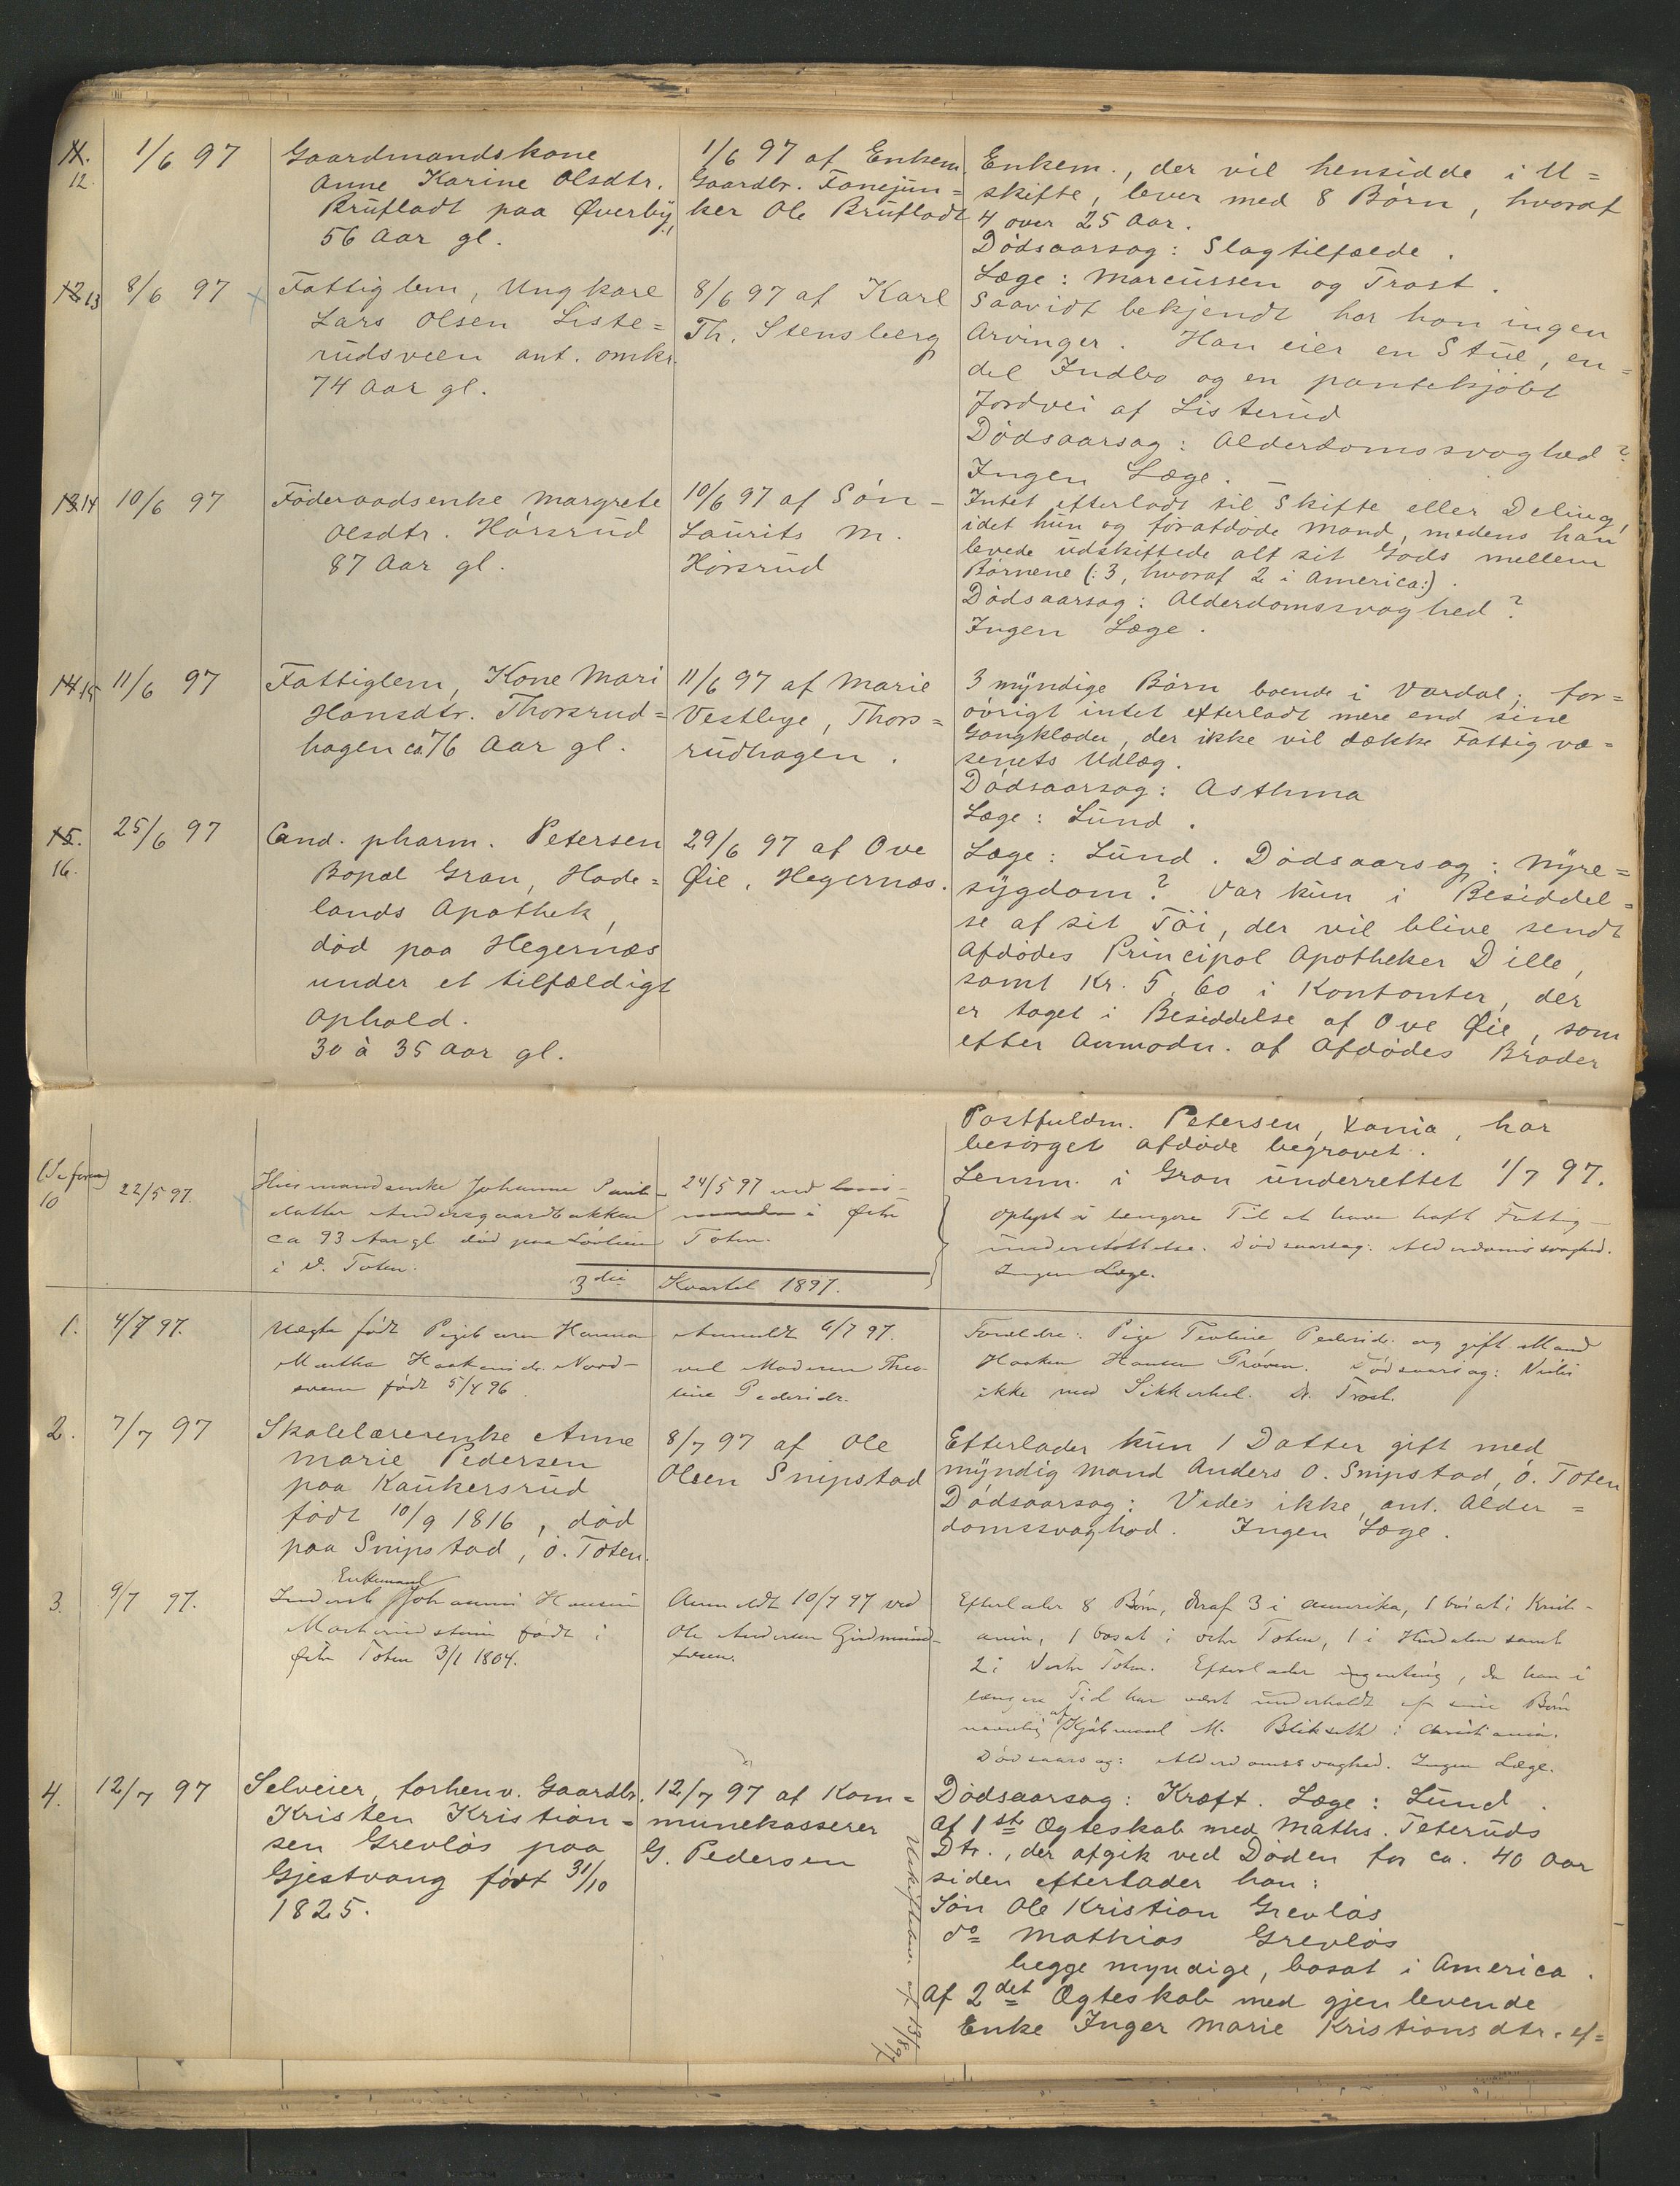 12.
1/6 97
Gaardmandskone
Anne Karine Olsdtr.
Brufladt paa Øverby,
56 Aar gl.
1/6 97 af Enkem.
Gaardbr. Fanejun=
ker Ole Brufladt
Enkem., der vil hensidde i U=
skifte, lever med 8 Børn, hvoraf
4 over 25 Aar.
Dødsaarsag: Slagtilfælde.
Læge: Marcussen og Trost.
13
8/6 97
Fattiglem, Ungkarl
Lars Olsen Liste=
rudsveen ant. omkr.
74 Aar gl.
8/6 97 af Karl
Th. Stensberg
Saavidt bekjendt har han ingen
Arvinger. Han eier en Stue, en=
del Indbo og en pantekjøbt
Jordvei af Listerud
Dødsaarsag: Alderdomssvaghed?
Ingen Læge.
14
10/6 97
Føderaadsenke Margrete
Olsdtr. Hørsrud
87 Aar gl.
10/6 97 af Søn
Laurits M.
Hørsrud
Intet efterladt til Skifte eller Deling,
idet hun og foratdøde Mand, medens han
levede udskiftede alt sit Gods mellem
Børnene (: 3, hvoraf 2 i America:).
Dødsaarsag: Alderdomssvaghed?
Ingen Læge.
15
11/6 97
Fattiglem, Kone Mari
Hansdtr. Thorsrud=
hagen ca 76 Aar gl.
11/6 97 af Marie
Vestbye, Thors=
rudhagen.
3 myndige Børn boende i Vardal; for=
øvrigt intet efterladt mere end sine
Gangklæder, der ikke vil dække Fattigvæ=
senets Udlæg.
Dødsaarsag: Asthma
Læge: Lund.
15.
16.
25/6 97
Cand. pharm. Petersen
Bopæl Gran, Hade=
lands Apothek,
død paa Hegernæs
under et tilfældigt
Ophold.
30 à 35 Aar gl.
29/6 97 af Ove
Øie, Hegernæs.
Læge: Lund. Dødsaarsag: Nyre=
sygdom? Var kun i Besiddel=
se af sit Tøi, der vil blive sendt
Afdødes Principal Apotheker Dille,
samt Kr. 5,60 i Kontanter, der
er taget i Besiddelse af Ove Øie, som
efter Anmodn. af Afdødes Broder
Postfuldm. Petersen, Xania, har
besørget afdøde begravet.
Lensm. i Gran underrettet 1/7 97.
10
22/5 97.
Husmandsenke Johanne
datter Andersgaardbakken
ca 93 Aar gl. død paa
i V. Toten.
24/5 97 ved
i Østre
Toten.
Oplyst i længere Tid at have havt Fattig-
understøttelse. Dødsaarsag: Alderdomssvaghed.
Ingen Læge.
3die Kvartal 1897.
1.
4/7 97.
Uægte født Pigebarn Hanna
Martha Haakensdr. Nord-
sveen født 5/4 96.
Anmeldt 6/7 97.
ved Moderen Theo-
line Pedersdr.
Forældre: Pige Teoline Pedersdr. og gift Mand
Haaken Hansen Prøven. Dødsaarsag: Vides
ikke med Sikkerhed. Dr. Trost.
2.
7/7 97
Skolelærerenke Anne
Marie Pedersen
paa Kaukersrud
født 10/9 1816, død
paa Snipstad, ö. Toten.
8/7 97 af Ole
Olsen Snipstad
Efterlader kun 1 Datter gift med
myndig Mand Anders O. Snipstad, ö. Toten
Dødsaarsag: Vides ikke, ant. Alder=
domssvaghed. Ingen Læge.
3.
9/7 97.
Enkemand
Inderst Johannes Hansen
født i
Østre Toten 3/1 1804.
Anmeldt 10/7 97 ved
Ole Andersen Gudmund-
Efterlader 8 Børn, deraf 3 i Amerika, 1 bosat i Kristi-
ania, 1 bosat i østre Toten, 1 i Hurdalen samt
2 i Vestre Toten. Efterlader ingenting, da han i
længere Tid har været underholdt af sine Børn
navnlig af Kjøbmand M. Blikseth i Christiania.
Dødsaarsag: Alderdomssvaghed. Ingen Læge.
4.
12/7 97
Selveier, forhenv. Gaardbr.
Kristen Kristian=
sen Grevløs paa
Gjestvang født 31/10
1825.
12/7 97 af Kom=
munekasserer
G. Pedersen
Dødsaarsag: Kræft. Læge: Lund.
Af 1ste Ægteskab med Maths. Teteruds
Dtr., der afgik ved Døden for ca. 40 Aar
siden efterlader han:
Søn Ole Kristian Grevløs
do Mathias Grevløs
begge myndige, bosat i America.
Af 2det Ægteskab med gjenlevende
Enke Inger Marie Kristiansdtr. ef=